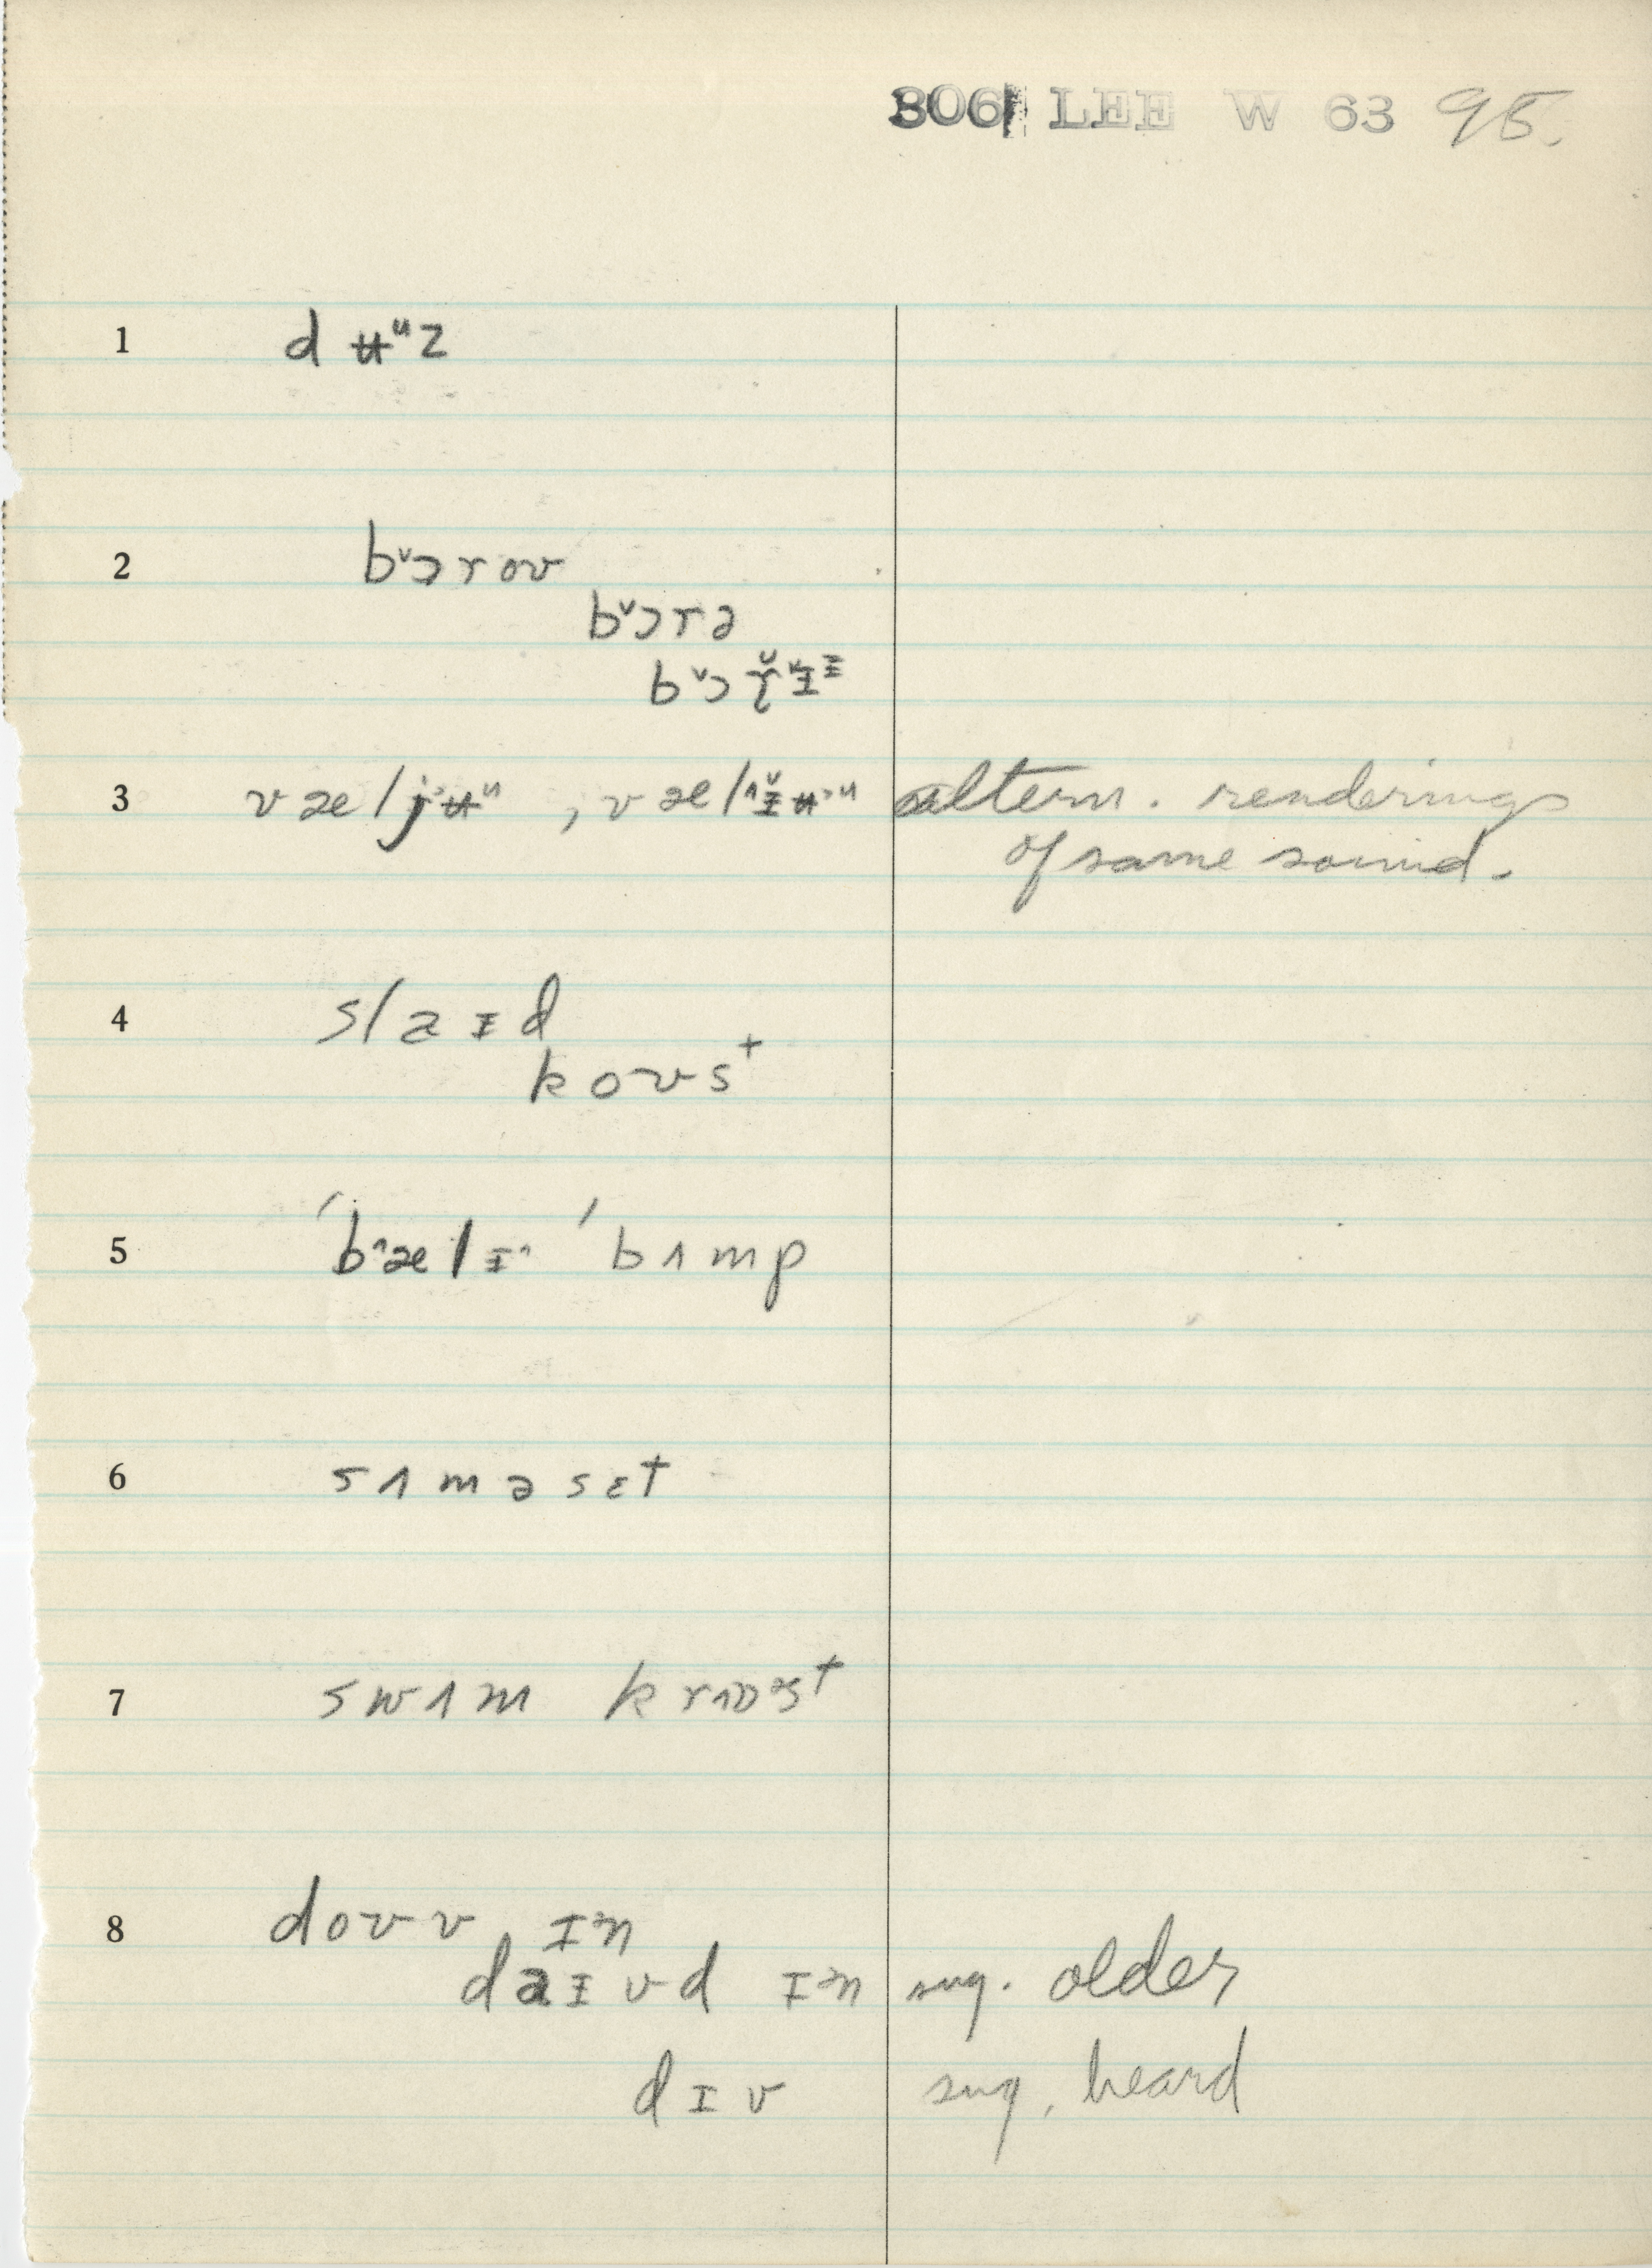 306 LEE W 63 95.
1 dʉᵘz
2 b˅ɔroʊ
b˅ɔrə
b˅ɔɽ̆˅ɪᶦ
3 væljʉᵘ , væl^ɪ̆ʉ˃ᵘ altern. renderings
of same sound.
4 slaɪd
koʊst
5 ˈb^ælɪ^ ˈbʌmp
6 sʌməsɛt
7 swʌm krɒst
8 doʊv ɪ˃n
daɪvd ɪ˃n sug. older
dɪv sug. heard